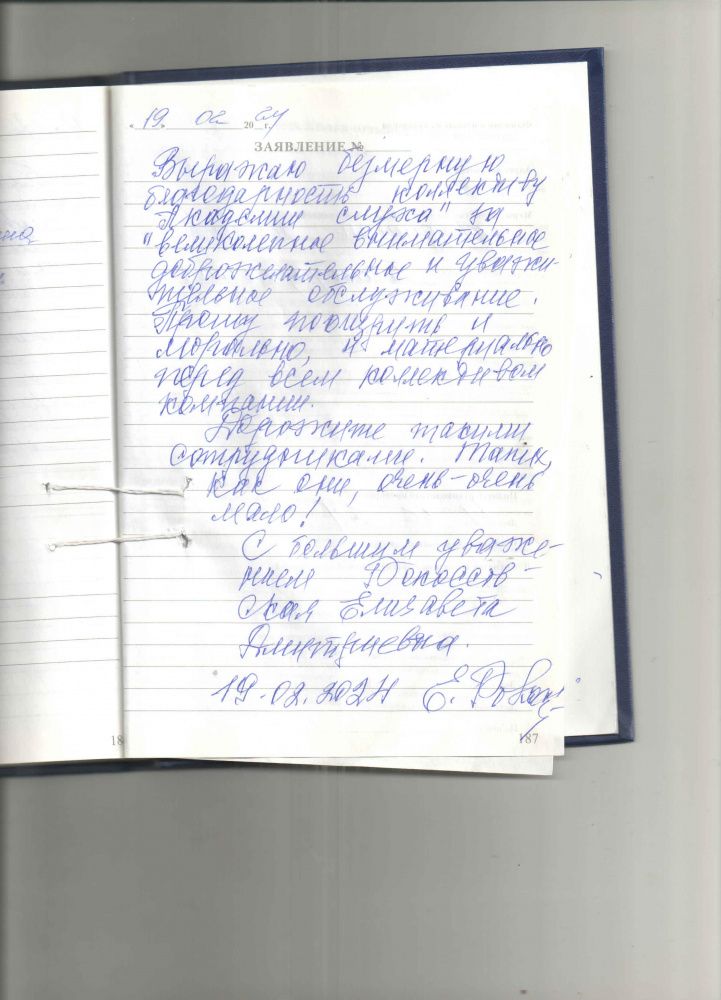 « 19 » 02 2024 г.
ЗАЯВЛЕНИЕ №
Выражаю безмерную
благодарность коллективу
"Академии слуха" за
великолепное внимательное
доброжелательное и уважи-
тельное обслуживание.
Прошу поощрить и
морально, и материально
перед всем коллективом
компании.
Дорожите такими
сотрудниками. Таких,
как они, очень-очень
мало!
С большим уваже-
нием
ская Елизавета
Дмитриевна.
19.02.2024 Е.
18
187